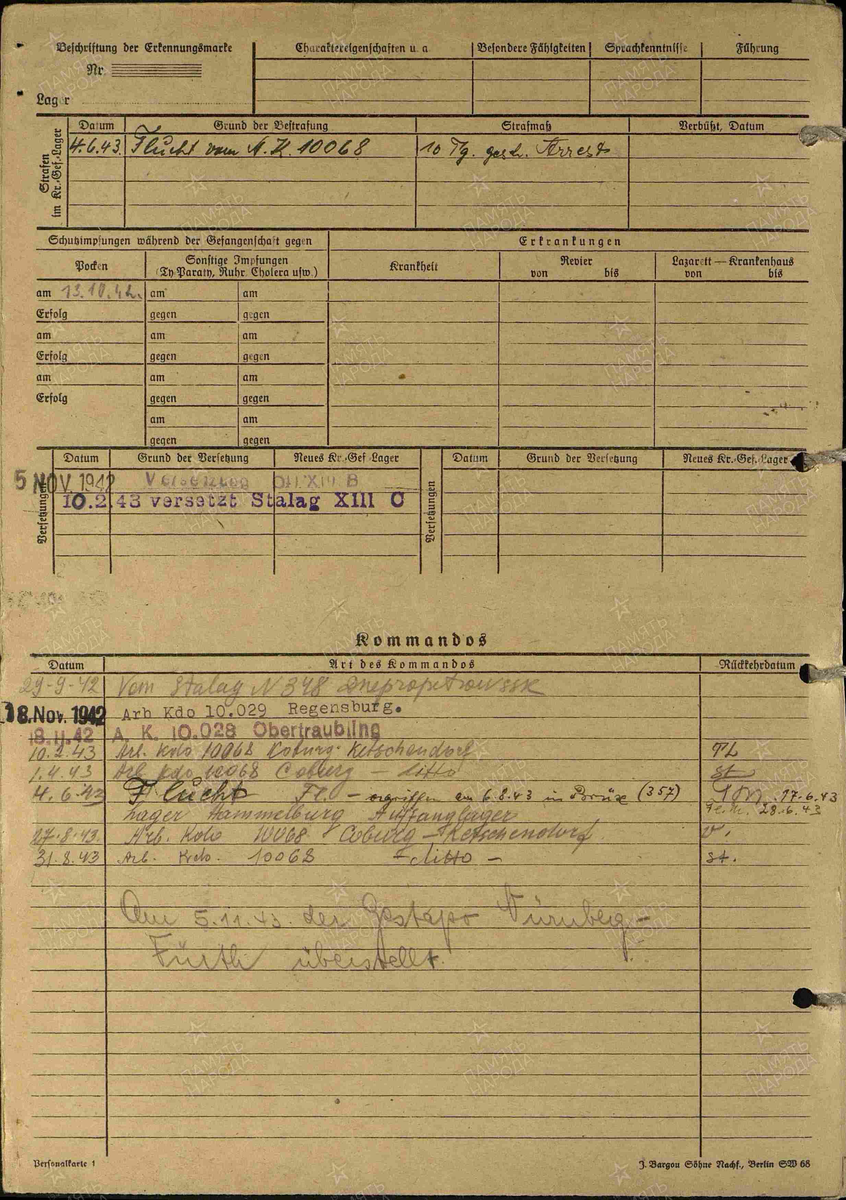 Beschriftung der Erkennungsmarke
Nr
Lager
Charaktereigenschaften u. a
Besondere Fähigkeiten
Sprachkenntnisse
Führung
Strafen im Kr.-Gef.-Lager
Datum Grund der Bestrafung Strafmaß Verbüßt, Datum
4.6.43. Flucht vom A.K. 10068 10 Tg. gesch. Arrest
Schutzimpfungen während der Gefangenschaft gegen
Erkrankungen
Pocken
Sonstige Impfungen
(Ty.Paraty, Ruhr, Cholera usw.)
Krankheit
Revier
von bis
Lazarett — Krankenhaus
von bis
am 13.10.42. am am
Erfolg gegen gegen
am am am
Erfolg gegen gegen
am am am
Erfolg gegen gegen
am am
gegen gegen
Versetzungen
Datum Grund der Versetzung Neues Kr.-Gef.-Lager
Versetzungen
Datum Grund der Versetzung Neues Kr.-Gef.-Lager
5 NOV. 1942 XIII B
10.2.43 versetzt Stalag XIII C
Kommandos
Datum Art des Kommandos Rückkehrdatum
29-9-42 Vom Stalag N 348 Dnepropetrowssk
18. Nov. 1942 Arb Kdo 10.029 Regensburg.
18.11.42 A. K. 10.028 Obertraubling
10.2.43 Arb. Kdo 10068 Coburg-Ketschendorf
1.4.43 Arb Kdo 10068 Coburg — ditto st
4.6.43 Flucht Fl. — ergriffen am 6.8.43 in Brüx (357) 17.6.43
Lager Hammelburg Auffanglager 28.6.43
27.8.43. Arb. Kdo 10068 Coburg-Ketschendorf v.
31.8.43 Arb. Kdo. 10068 ditto — st.
Am 5.11.43. der Gestapo Nürnberg-
Fürth überstellt.
Personalkarte 1
J. Bargou Söhne Nachf., Berlin SW 68
ПАМЯТЬ НАРОДА